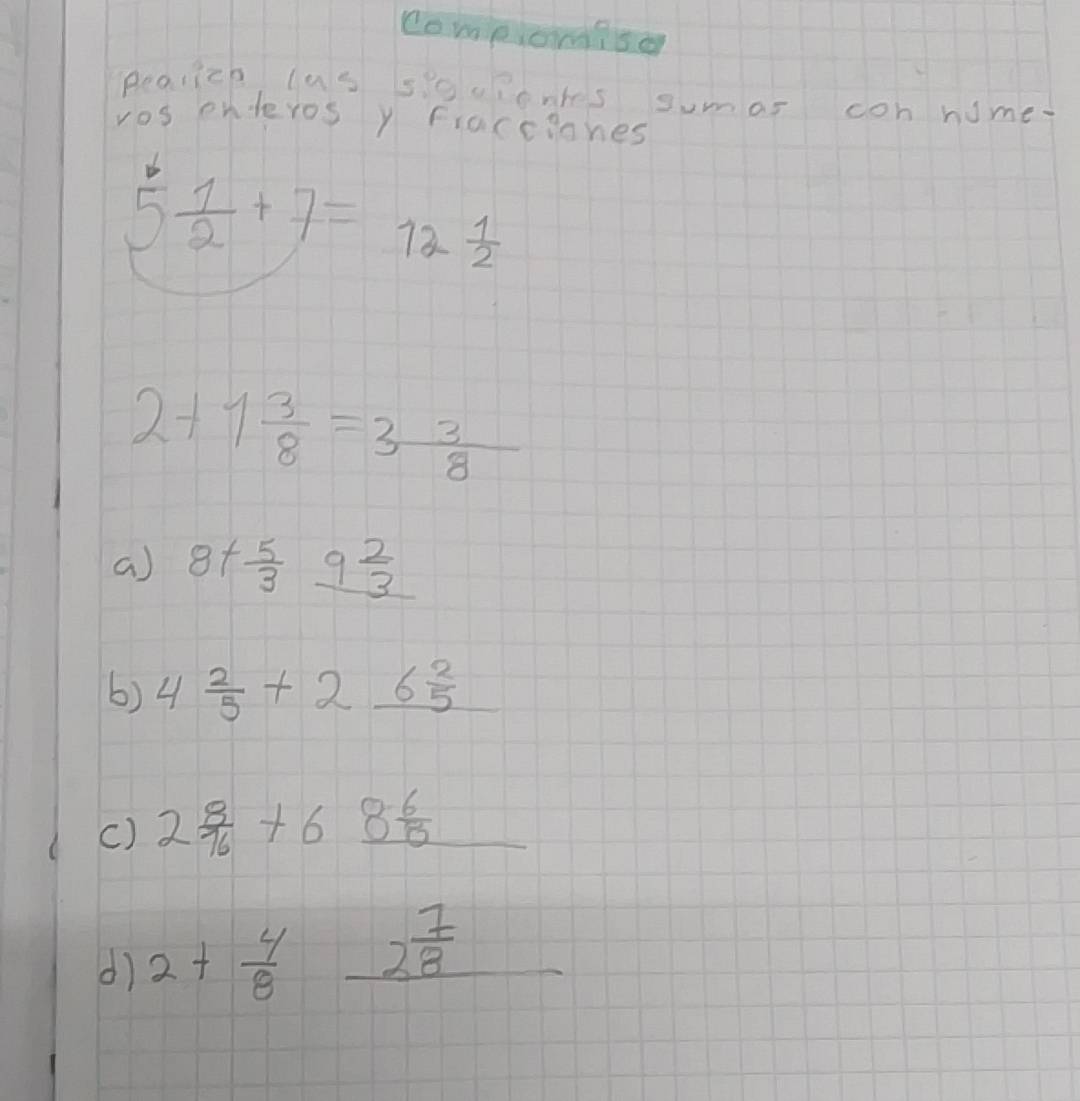 Compromiso
Realiza las siguientes sumas con núme-
ros enteros y Fracciones
5 1/2 + 7 = 12 1/2
2 + 1 3/8 = 3 3/8
a) 8 + 5/3 9 2/3
b) 4 2/5 + 2 6 2/5
c) 2 8/16 + 6 8 6/8
d) 2 + 4/8 2 7/8